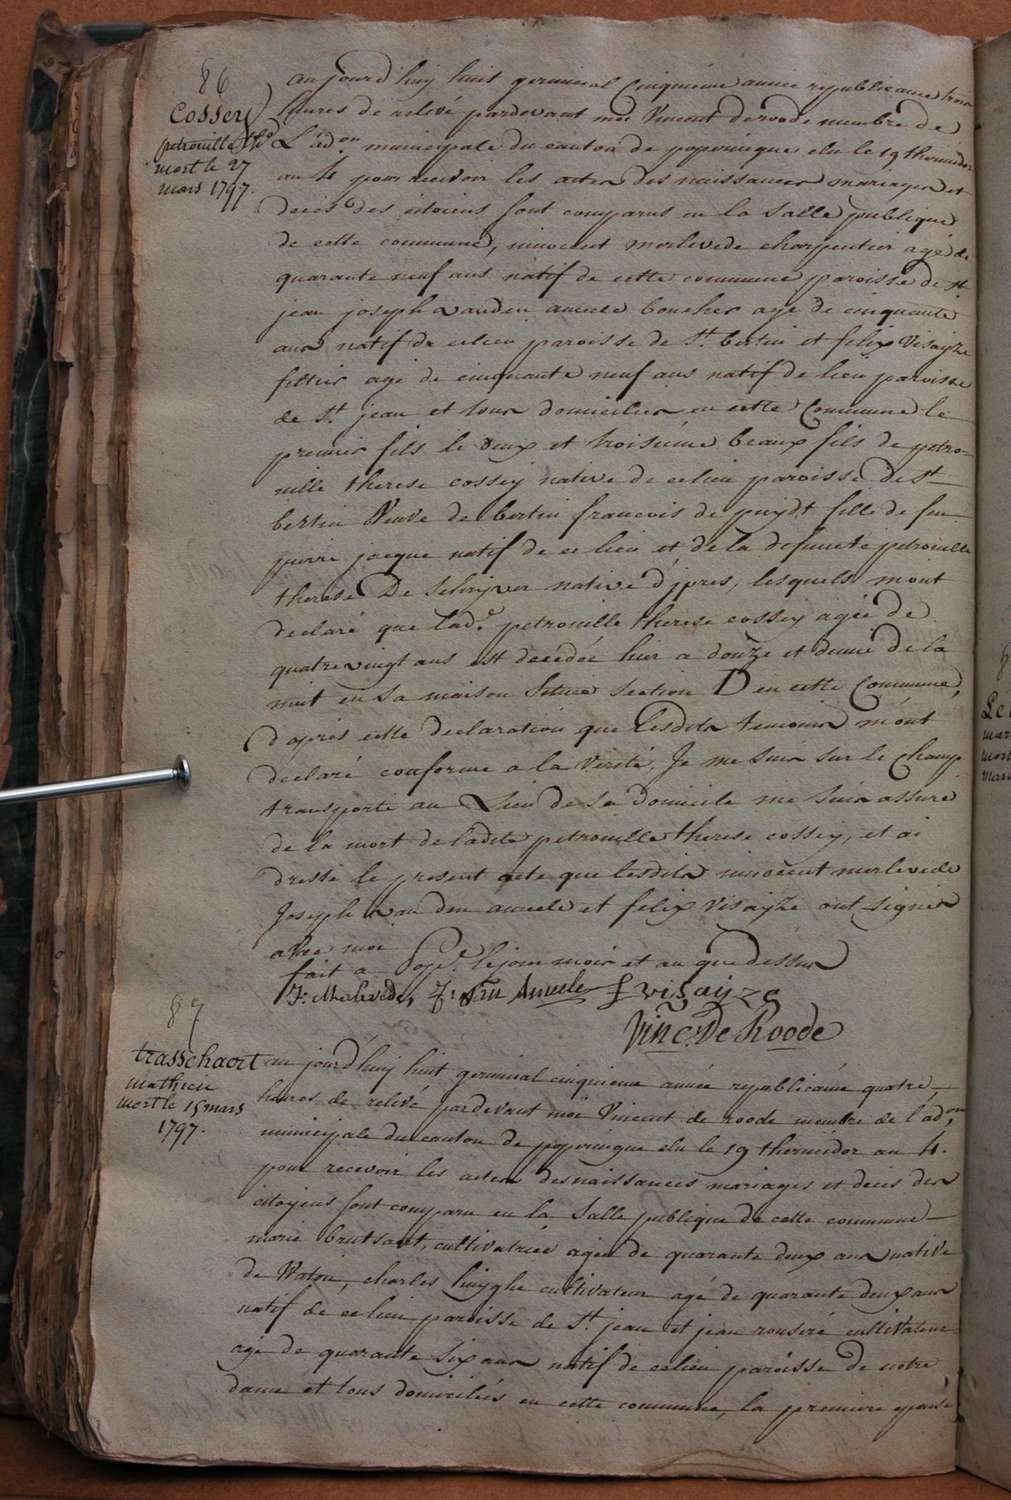 86
Cossey
petronille The
mort le 27
mars 1797.
au jourd'huy huit germinal cinquieme année republicaine trois
heures de relevé pardevant moi Vincent De roode membre de
L'adon municipale du canton de poperingue elu le 19 thermidor
an 4 pour recevoir les actes des naissances mariages et
deces des citoiens sont comparus en la Salle publique
de cette commune, innocent merlevede charpentier agé de
quarante neuf ans natif de cette commune paroisse de St
jean joseph vanden ameele boucher agé de cinquante
ans natif de ce lieu paroisse de St bertin et felix Visaÿze
agé de cinquante neuf ans natif de lieu paroisse
de St jean et tous domiciliés en cette Commune le
premier fils le deux et troisieme beaux fils de petro-
nille therese cossey native de ce lieu paroisse de St
bertin Veuve de bertin francois de puydt fille de feu
pierre jacque natif de ce lieu et de la defuncte petronille
therese De Schryver native d'jpres, lesquels m'ont
declaré que lade petronille therese cossey agée de
quatrevingt ans est decedée hier a douze et demie de la
nuit en sa maison Situee section D en cette Commune,
d'après cette declaration que lesdits temoins m'ont
declaré conforme a la Verité, Je me suis sur le Champ
transporté au Lieu de Sa domicile me suis assuré
de la mort de ladite petronille therese cossey, et ai
dressé le present acte que lesdits innocent merlevede
Joseph van den ameele et felix visaÿze ont signés
avec moi
fait a Pope. le jour mois et an que dessus
J: Merlevede, J: Van Ameele f visaÿze
Vinc. De Roode
87
trasschaert
mathieu
mort le 15 mars
1797.
au jourd'huy huit germinal cinquieme année republicaine quatre
heures de relevé pardevant moi Vincent de roode membre de l'adon
municipale du canton de poperingue elu le 19 thermidor an 4.
pour recevoir les actes des naissances mariages et deces des
citoyens sont comparu en la Salle publique de cette commune
marie brutsaert, cultivatrice agée de quarante deux ans native
de Watou, charles huyghe cultivateur agé de quarante deux ans
natif de ce lieu paroisse de St jean et jean rouseré cultivateur
agé de quarante six ans natif de ce lieu paroisse de notre
dame et tous domiciliés en cette commune, la premiere epouse
8
Le
mar
mort
mars